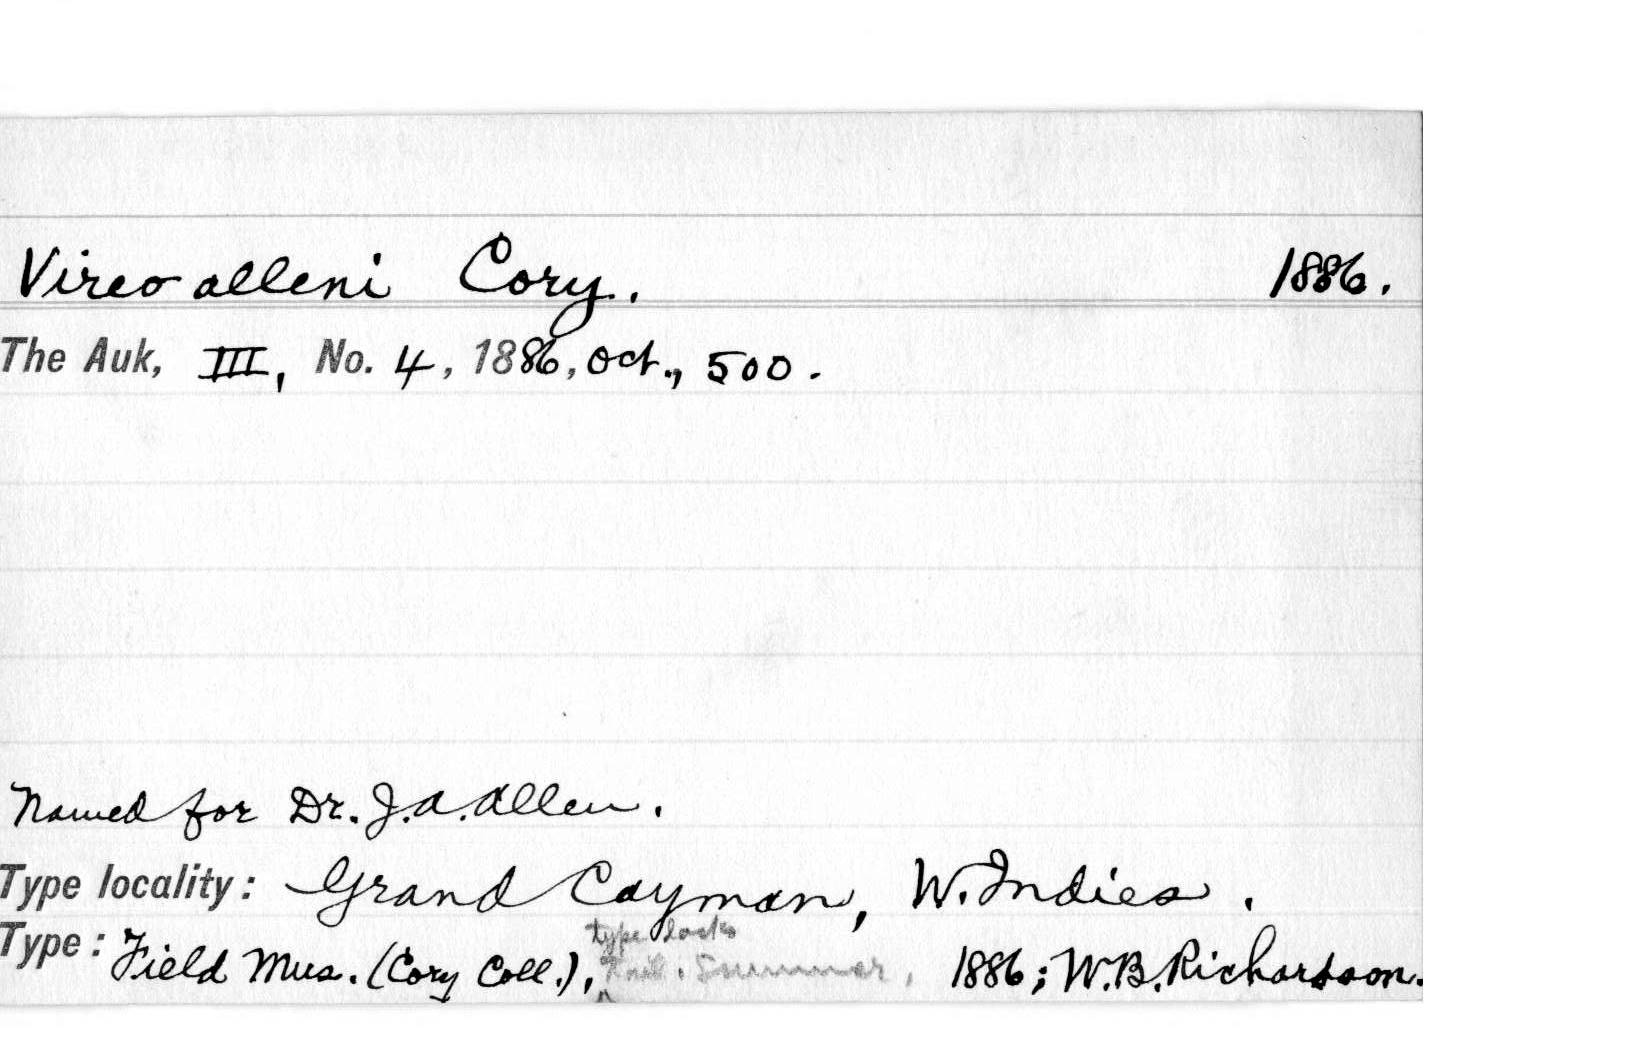 Vireo alleni Cory. 1886.
The Auk, III, No. 4, 1886, Oct., 500.
Named for Dr. J.A. Allen.
Type locality: Grand Cayman, W. Indies.
type lacks
Type: Field Mus. (Cory Coll.), Summer, 1886; W.B. Richardson.